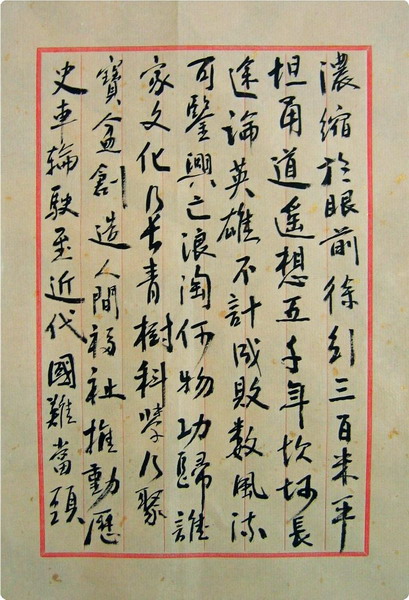 濃縮於眼前徐行三百米平
坦甬道遙想五千年坎坷長
途論英雄不計成敗數風流
可鑒興亡浪淘何物功歸誰
家文化乃長青樹科學乃聚
寶盆創造人間福祉推動歷
史車輪駛至近代國難當頭